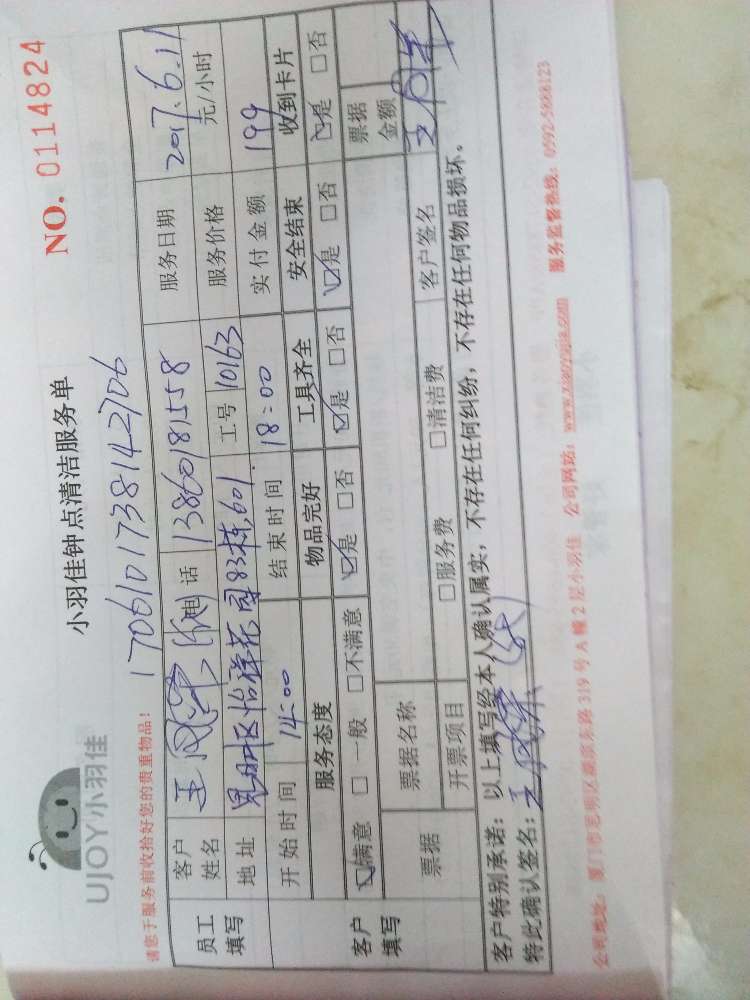 UJOY小羽佳
NO. 0114824
小羽佳钟点清洁服务单
请您于服务前收拾好您的贵重物品！
1706101738142706
员工填写 客户姓名 电话 13860181558 服务日期 2017.6.11
地址 思明区怡祥花园83栋601 工号 10163 服务价格 元/小时
开始时间 14:00 结束时间 18:00 实付金额 199
客户填写 服务态度 物品完好 工具齐全 安全结束 收到卡片
☑满意 □一般 □不满意 ☑是 □否 ☑是 □否 ☑是 □否 ☑是 □否
票据 票据名称 票据金额
开票项目 □服务费 □清洁费 客户签名
客户特别承诺：以上填写经本人确认属实，不存在任何纠纷，不存在任何物品损坏。
特此确认签名：
公司地址：厦门市思明区湖滨东路319号A幢2层小羽佳 公司网站：www.xiaoyujia.com 服务监督热线：0592-5888123